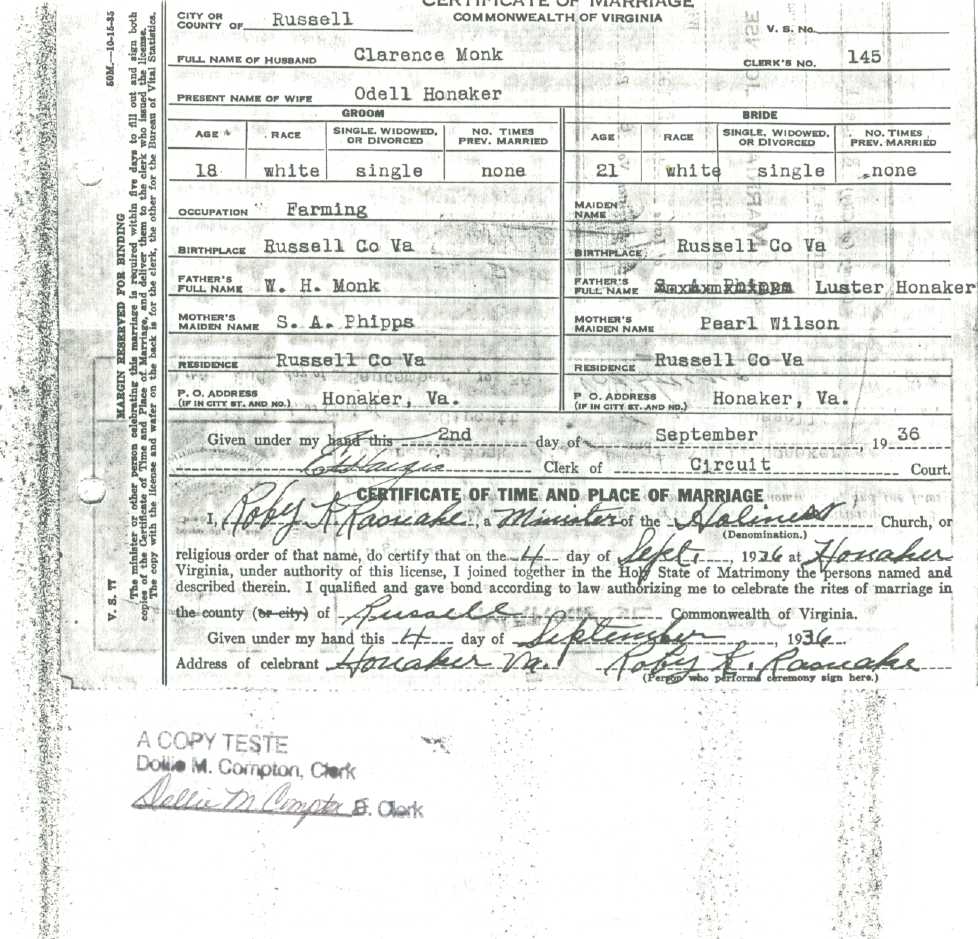 CERTIFICATE OF MARRIAGE
COMMONWEALTH OF VIRGINIA
CITY OR
COUNTY OF Russell
V. S. No.
FULL NAME OF HUSBAND Clarence Monk CLERK'S NO. 145
PRESENT NAME OF WIFE Odell Honaker
GROOM BRIDE
AGE RACE SINGLE, WIDOWED, OR DIVORCED NO. TIMES PREV. MARRIED AGE RACE SINGLE, WIDOWED, OR DIVORCED NO. TIMES PREV. MARRIED
18 white single none 21 white single none
OCCUPATION Farming MAIDEN NAME
BIRTHPLACE Russell Co Va BIRTHPLACE Russell Co Va
FATHER'S FULL NAME W. H. Monk FATHER'S FULL NAME S. A. Phipps Luster Honaker
MOTHER'S MAIDEN NAME S. A. Phipps MOTHER'S MAIDEN NAME Pearl Wilson
RESIDENCE Russell Co Va RESIDENCE Russell Co Va
P. O. ADDRESS (IF IN CITY ST. AND NO.) Honaker, Va. P. O. ADDRESS (IF IN CITY ST. AND NO.) Honaker, Va.
Given under my hand this 2nd day of September, 1936
Clerk of Circuit Court.
CERTIFICATE OF TIME AND PLACE OF MARRIAGE
I, Roby K. , a Minister of the Holiness Church, or
(Denomination.)
religious order of that name, do certify that on the 4 day of Sept., 1936 at Honaker
Virginia, under authority of this license, I joined together in the Holy State of Matrimony the persons named and
described therein. I qualified and gave bond according to law authorizing me to celebrate the rites of marriage in
the county (or city) of Russell Commonwealth of Virginia.
Given under my hand this 4 day of September, 1936
Address of celebrant Honaker Va. Roby K.
(Person who performs ceremony sign here.)
V. S. 77 MARGIN RESERVED FOR BINDING 50M.—10-15-35
The minister or other person celebrating this marriage is required within five days to fill out and sign both
copies of the Certificate of Time and Place of Marriage, and deliver them to the clerk who issued the license.
The copy with the license and wafer on the back is for the clerk, the other for the Bureau of Vital Statistics.
A COPY TESTE
Dollie M. Compton, Clerk
Dollie M Compton D. Clerk